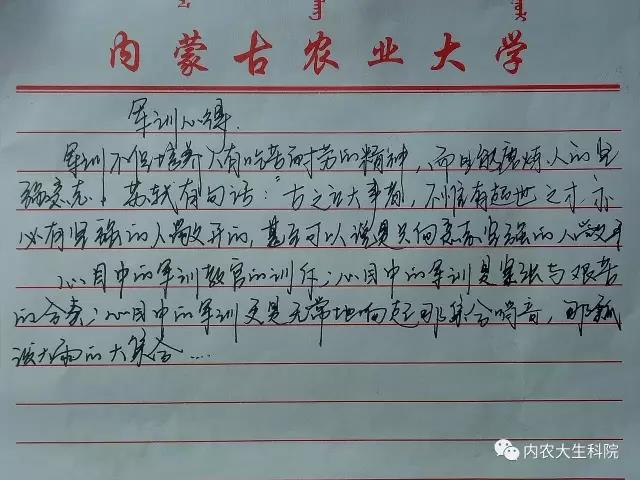 内蒙古农业大学
军训心得.
军训不但培养人有吃苦耐劳的精神,而且能磨炼人的坚
强意志。苏轼有句话:“古之立大事者,不惟有超世之才,亦
必有坚强的人敞开的,甚至可以说是只向意志坚强的人敞开
心目中的军训教官的训斥;心目中的军训是紧张与艰苦
的合奏;心目中的军训更是无常地响起那集合哨音,那
大雨的大集合....
内农大生科院